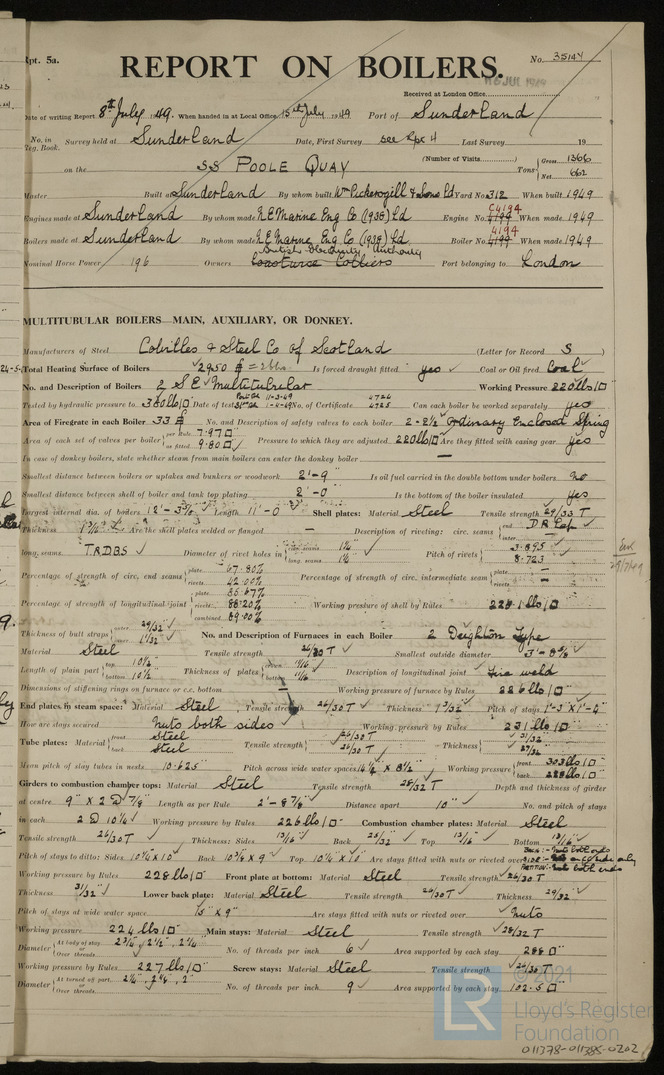 Rpt. 5a.
No. 35144
REPORT ON BOILERS.
16 JUL 1949
Received at London Office
Date of writing Report 8th July 1949. When handed in at Local Office 15th July 1949 Port of Sunderland
No. in Reg. Book. Survey held at Sunderland Date, First Survey see Rpt 4 Last Survey 19
(Number of Visits)
on the SS POOLE QUAY Tons Gross 1366 Net 662
Master Built at Sunderland By whom built Wm Pickersgill & Sons Ld Yard No. 312 When built 1949
Engines made at Sunderland By whom made N.E. Marine Eng Co (1938) Ld Engine No. 4199 C4194 When made 1949
Boilers made at Sunderland By whom made N.E. Marine Eng Co (1938) Ld Boiler No. 4199 4194 When made 1949
Nominal Horse Power 196 Owners British Electricity Authority Coastwise Colliers Port belonging to London
MULTITUBULAR BOILERS MAIN, AUXILIARY, OR DONKEY.
Manufacturers of Steel Colvilles & Steel Co of Scotland (Letter for Record S)
Total Heating Surface of Boilers 2950 Is forced draught fitted yes Coal or Oil fired Coal
No. and Description of Boilers 2 S E Multitubular Working Pressure 220 lbs □
Tested by hydraulic pressure to 380 lbs □ Date of test 11-3-49 1-4-49 No. of Certificate 4724 4725 Can each boiler be worked separately yes
Area of Firegrate in each Boiler 33 No. and Description of safety valves to each boiler 2 - 2½ Ordinary Enclosed Spring
Area of each set of valves per boiler per Rule 7.97 □ as fitted 9.80 □ Pressure to which they are adjusted 220 lbs □ Are they fitted with easing gear yes
In case of donkey boilers, state whether steam from main boilers can enter the donkey boiler —
Smallest distance between boilers or uptakes and bunkers or woodwork 2'-9" Is oil fuel carried in the double bottom under boilers no
Smallest distance between shell of boiler and tank top plating 2'-0" Is the bottom of the boiler insulated yes
Largest internal dia. of boilers 12'-3 Length 11'-0" Shell plates: Material Steel Tensile strength 29/33 T
Thickness Are the shell plates welded or flanged — Description of riveting: circ. seams end D R Lap inter. —
long. seams T.R.D.B.S Diameter of rivet holes in circ. seams long. seams Pitch of rivets 3.895 8.723
Percentage of strength of circ. end seams plate 67.80% rivets 42.00% Percentage of strength of circ. intermediate seam plate — rivets —
Percentage of strength of longitudinal joint plate 85.67% rivets 88.20% combined 89.00% Working pressure of shell by Rules
Thickness of butt straps outer 29/32 inner 1 1/32 No. and Description of Furnaces in each Boiler 2 Deighton Type
Material Steel Tensile strength 26/30 T Smallest outside diameter 3'-8⅝
Length of plain part top 10½ bottom 10½ Thickness of plates crown 11/16 bottom 11/16 Description of longitudinal joint Fire weld
Dimensions of stiffening rings on furnace or c.c. bottom — Working pressure of furnace by Rules 226 lbs □
End plates in steam space: Material Steel Tensile strength 26/30 T Thickness 1 3/32 Pitch of stays 1'-3" X 1'-4"
How are stays secured Nuts both sides Working pressure by Rules 231 lbs □
Tube plates: Material front Steel back Steel Tensile strength 26/30 T 26/30 T Thickness 31/32 27/32
Mean pitch of stay tubes in nests 10.625" Pitch across wide water spaces 14½ X 8½ Working pressure front 303 lbs □ back 228 lbs □
Girders to combustion chamber tops: Material Steel Tensile strength 28/32 T Depth and thickness of girder
at centre 9" X 2 @ ⅞" Length as per Rule 2'-8⅞ Distance apart 10" No. and pitch of stays
in each 2 @ 10¼ Working pressure by Rules 226 lbs □ Combustion chamber plates: Material Steel
Tensile strength 26/30 T Thickness: Sides 13/16 Back 25/32 Top 13/16 Bottom 13/16
Pitch of stays to ditto: Sides 10¼ X 10 Back 10¾ X 9 Top 10¼ X 10 Are stays fitted with nuts or riveted over Back:- Nuts both ends
Working pressure by Rules 228 lbs □ Front plate at bottom: Material Steel Tensile strength 26/30 T
Thickness 31/32" Lower back plate: Material Steel Tensile strength 26/30 T Thickness 29/32"
Pitch of stays at wide water space 15" X 9" Are stays fitted with nuts or riveted over nuts
Working pressure 224 lbs □ Main stays: Material Steel Tensile strength 28/32 T
Diameter At body of stay or Over threads 2¾, 2½, 2¼ No. of threads per inch 6 Area supported by each stay 288 □"
Working pressure by Rules 227 lbs □ Screw stays: Material Steel Tensile strength 26/30 T
Diameter At turned off part or Over threads No. of threads per inch 9 Area supported by each stay 102.5 □
LR
© 2021
Lloyd's Register
Foundation
011378-011385-0202